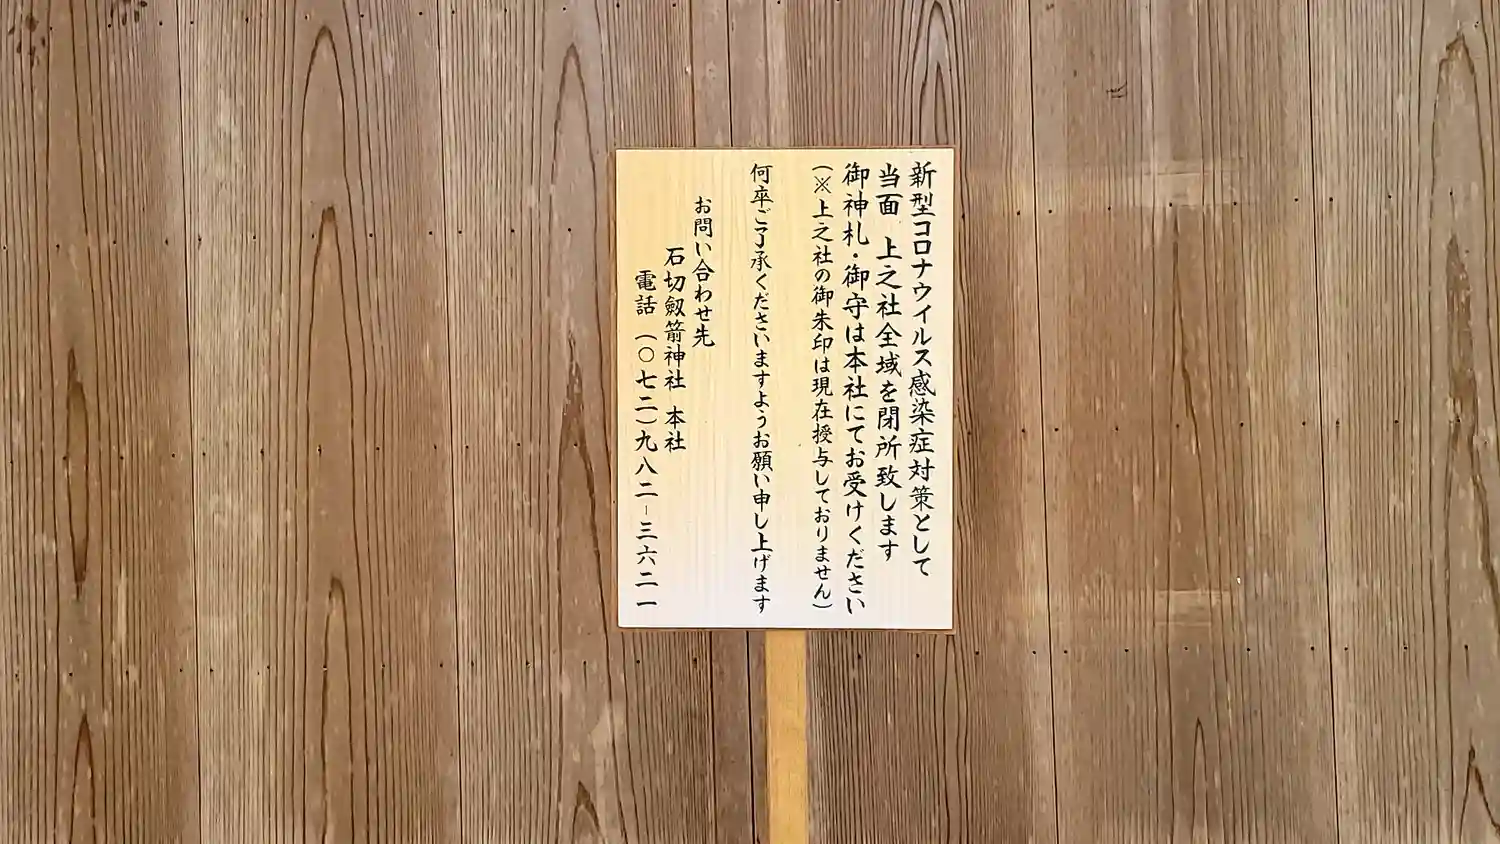 新型コロナウイルス感染症対策として
当面 上之社全域を閉所致します
御神札・御守は本社にてお受けください
(※上之社の御朱印は現在授与しておりません)
何卒ご了承くださいますようお願い申し上げます
お問い合わせ先
石切劔箭神社 本社
電話 (〇七二)九八二-三六二一